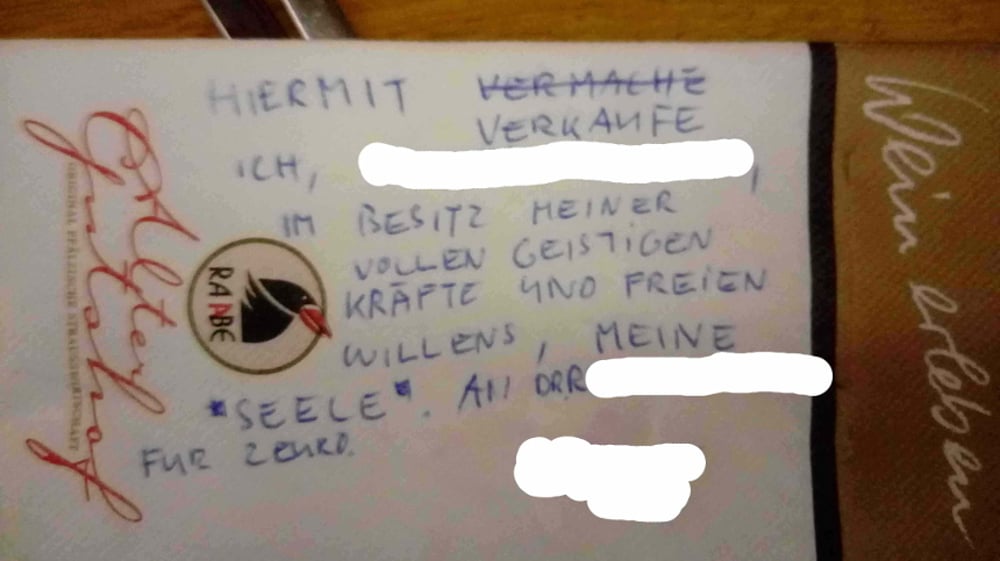 HIERMIT ~~VERMACHE~~
VERKAUFE
ICH, ,
IM BESITZ MEINER
VOLLEN GEISTIGEN
KRÄFTE UND FREIEN
WILLENS, MEINE
"SEELE". AN
FUR 2 EURO.
Alter
Gutshof
ORIGINAL PFÄLZISCHE STRAUSSWIRTSCHAFT
RABE
Wein erleben